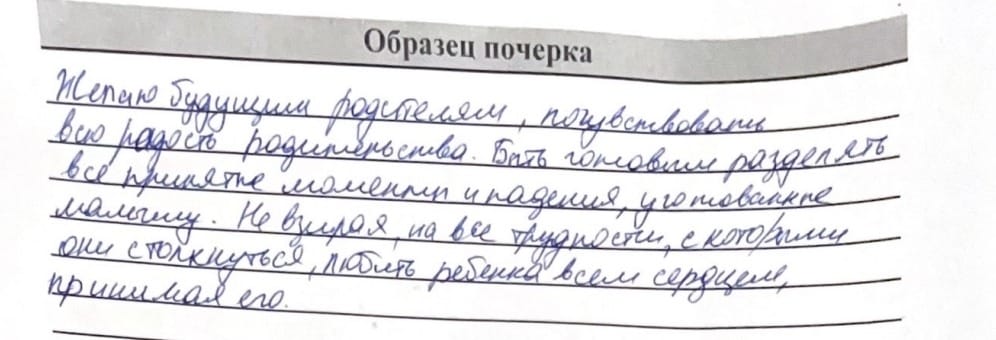 Образец почерка
Желаю будущим родителям, почувствовать
всю радость родительства. Быть готовым разделять
все приятые моменты и падения, уготованные
малышу. Не взирая, на все трудности, с которыми
они столкнуться, любить ребенка всем сердцем,
принимая его.